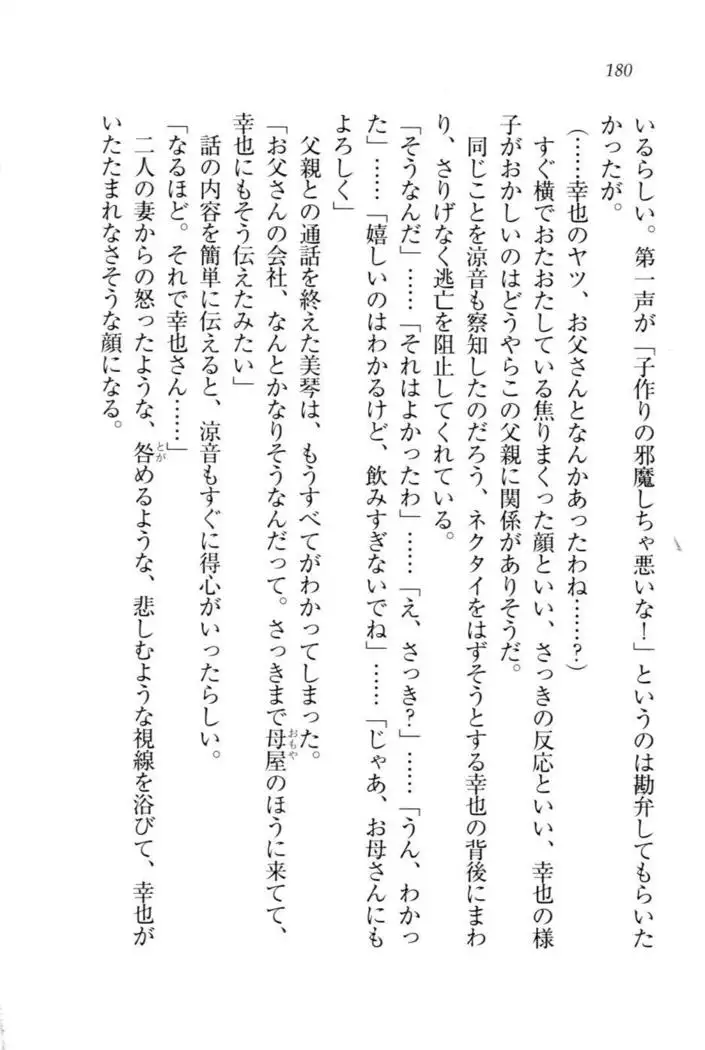 180
いるらしい。第一声が「子作りの邪魔しちゃ悪いな！」というのは勘弁してもらいた
かったが。
（……幸也のヤツ、お父さんとなんかあったわね……？）
すぐ横でおたおたしている焦りまくった顔といい、さっきの反応といい、幸也の様
子がおかしいのはどうやらこの父親に関係がありそうだ。
同じことを涼音も察知したのだろう、ネクタイをはずそうとする幸也の背後にまわ
り、さりげなく逃亡を阻止してくれている。
「そうなんだ」……「それはよかったわ」……「え、さっき？」……「うん、わかっ
た」……「嬉しいのはわかるけど、飲みすぎないでね」……「じゃあ、お母さんにも
よろしく」
父親との通話を終えた美琴は、もうすべてがわかってしまった。
「お父さんの会社、なんとかなりそうなんだって。さっきまで母屋おもやのほうに来てて、
幸也にもそう伝えたみたい」
話の内容を簡単に伝えると、涼音もすぐに得心がいったらしい。
「なるほど。それで幸也さん……」
二人の妻からの怒ったような、咎とがめるような、悲しむような視線を浴びて、幸也が
いたたまれなさそうな顔になる。